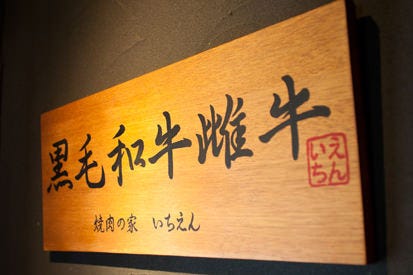 黒毛和牛雌牛
焼肉の家 いちえん
えん
いち